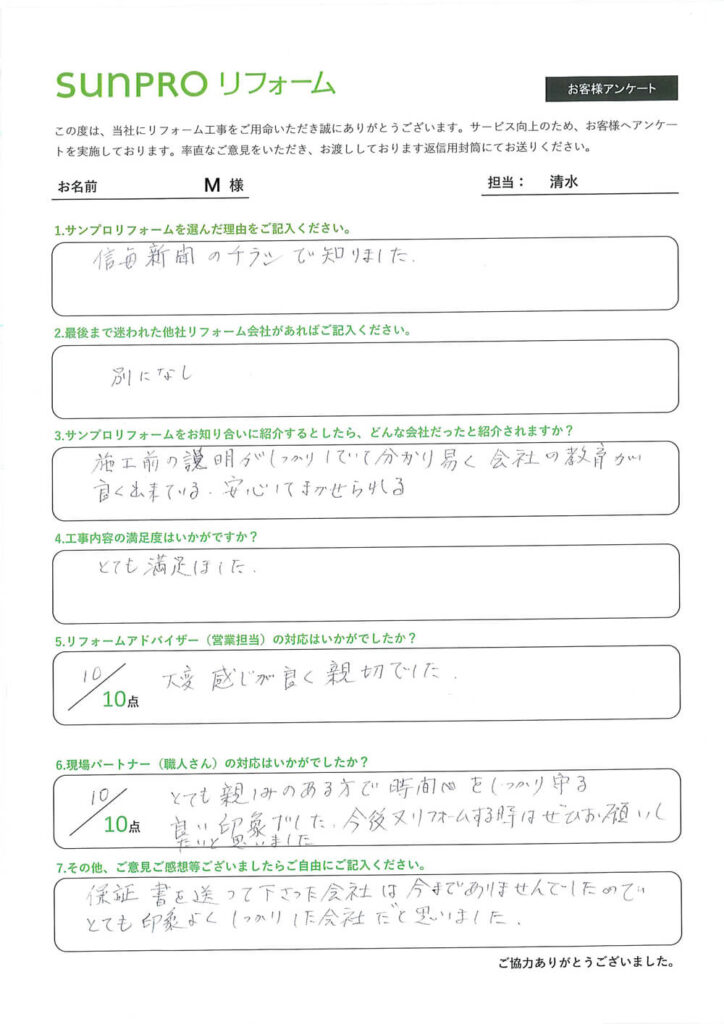 sunPRO リフォーム
お客様アンケート
この度は、当社にリフォーム工事をご用命いただき誠にありがとうございます。サービス向上のため、お客様へアンケー
トを実施しております。率直なご意見をいただき、お渡ししております返信用封筒にてお送りください。
お名前 M 様 担当： 清水
1.サンプロリフォームを選んだ理由をご記入ください。
信毎新聞のチラシで知りました.
2.最後まで迷われた他社リフォーム会社があればご記入ください。
別になし
3.サンプロリフォームをお知り合いに紹介するとしたら、どんな会社だったと紹介されますか？
施工前の説明がしっかりしていて分かり易く会社の教育が
良く出来ている.安心してまかせられる
4.工事内容の満足度はいかがですか？
とても満足しました.
5.リフォームアドバイザー（営業担当）の対応はいかがでしたか？
10/10点 大変感じが良く親切でした.
6.現場パートナー（職人さん）の対応はいかがでしたか？
10/10点 とても親しみのある方で時間をしっかり守る
良い印象でした.今後又リフォームする時はぜひお願いし
たいと思いました
7.その他、ご意見ご感想等ございましたらご自由にご記入ください。
保証書を送って下さった会社は今までありませんでしたので
とても印象よくしっかりした会社だと思いました.
ご協力ありがとうございました。